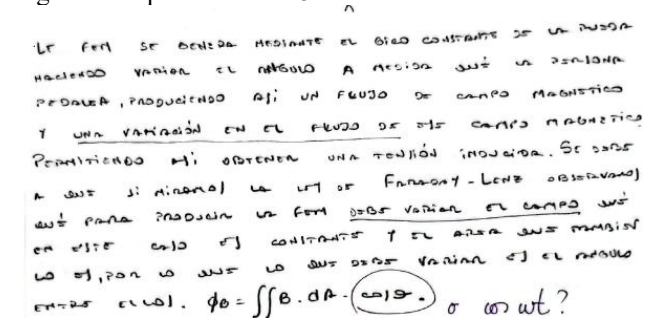 LA FEM SE GENERA MEDIANTE EL GIRO CONSTANTE DE LA RUEDA
HACIENDO VARIAR EL ANGULO A MEDIDA QUE LA PERSONA
PEDALEA, PRODUCIENDO ASI UN FLUJO DE CAMPO MAGNETICO
Y UNA VARIACIÓN EN EL FLUJO DE DIS CAMPO MAGNETICO
PERMITIENDO ASI OBTENER UNA TENSIÓN INDUCIDA. SE DEBE
A QUE SI MIRAMOS LA LEY DE FARADAY-LENZ OBSERVAMOS
QUE PARA PRODUCIR LA FEM DEBE VARIAR EL CAMPO QUE
EN ESTE CASO ES CONSTANTE Y EL AREA QUE TAMBIEN
LO ES, POR LO QUE LO QUE DEBE VARIAR ES EL ANGULO
ENTRE ELLOS. ϕB = ∬B.dA.cosθ. o cos wt?